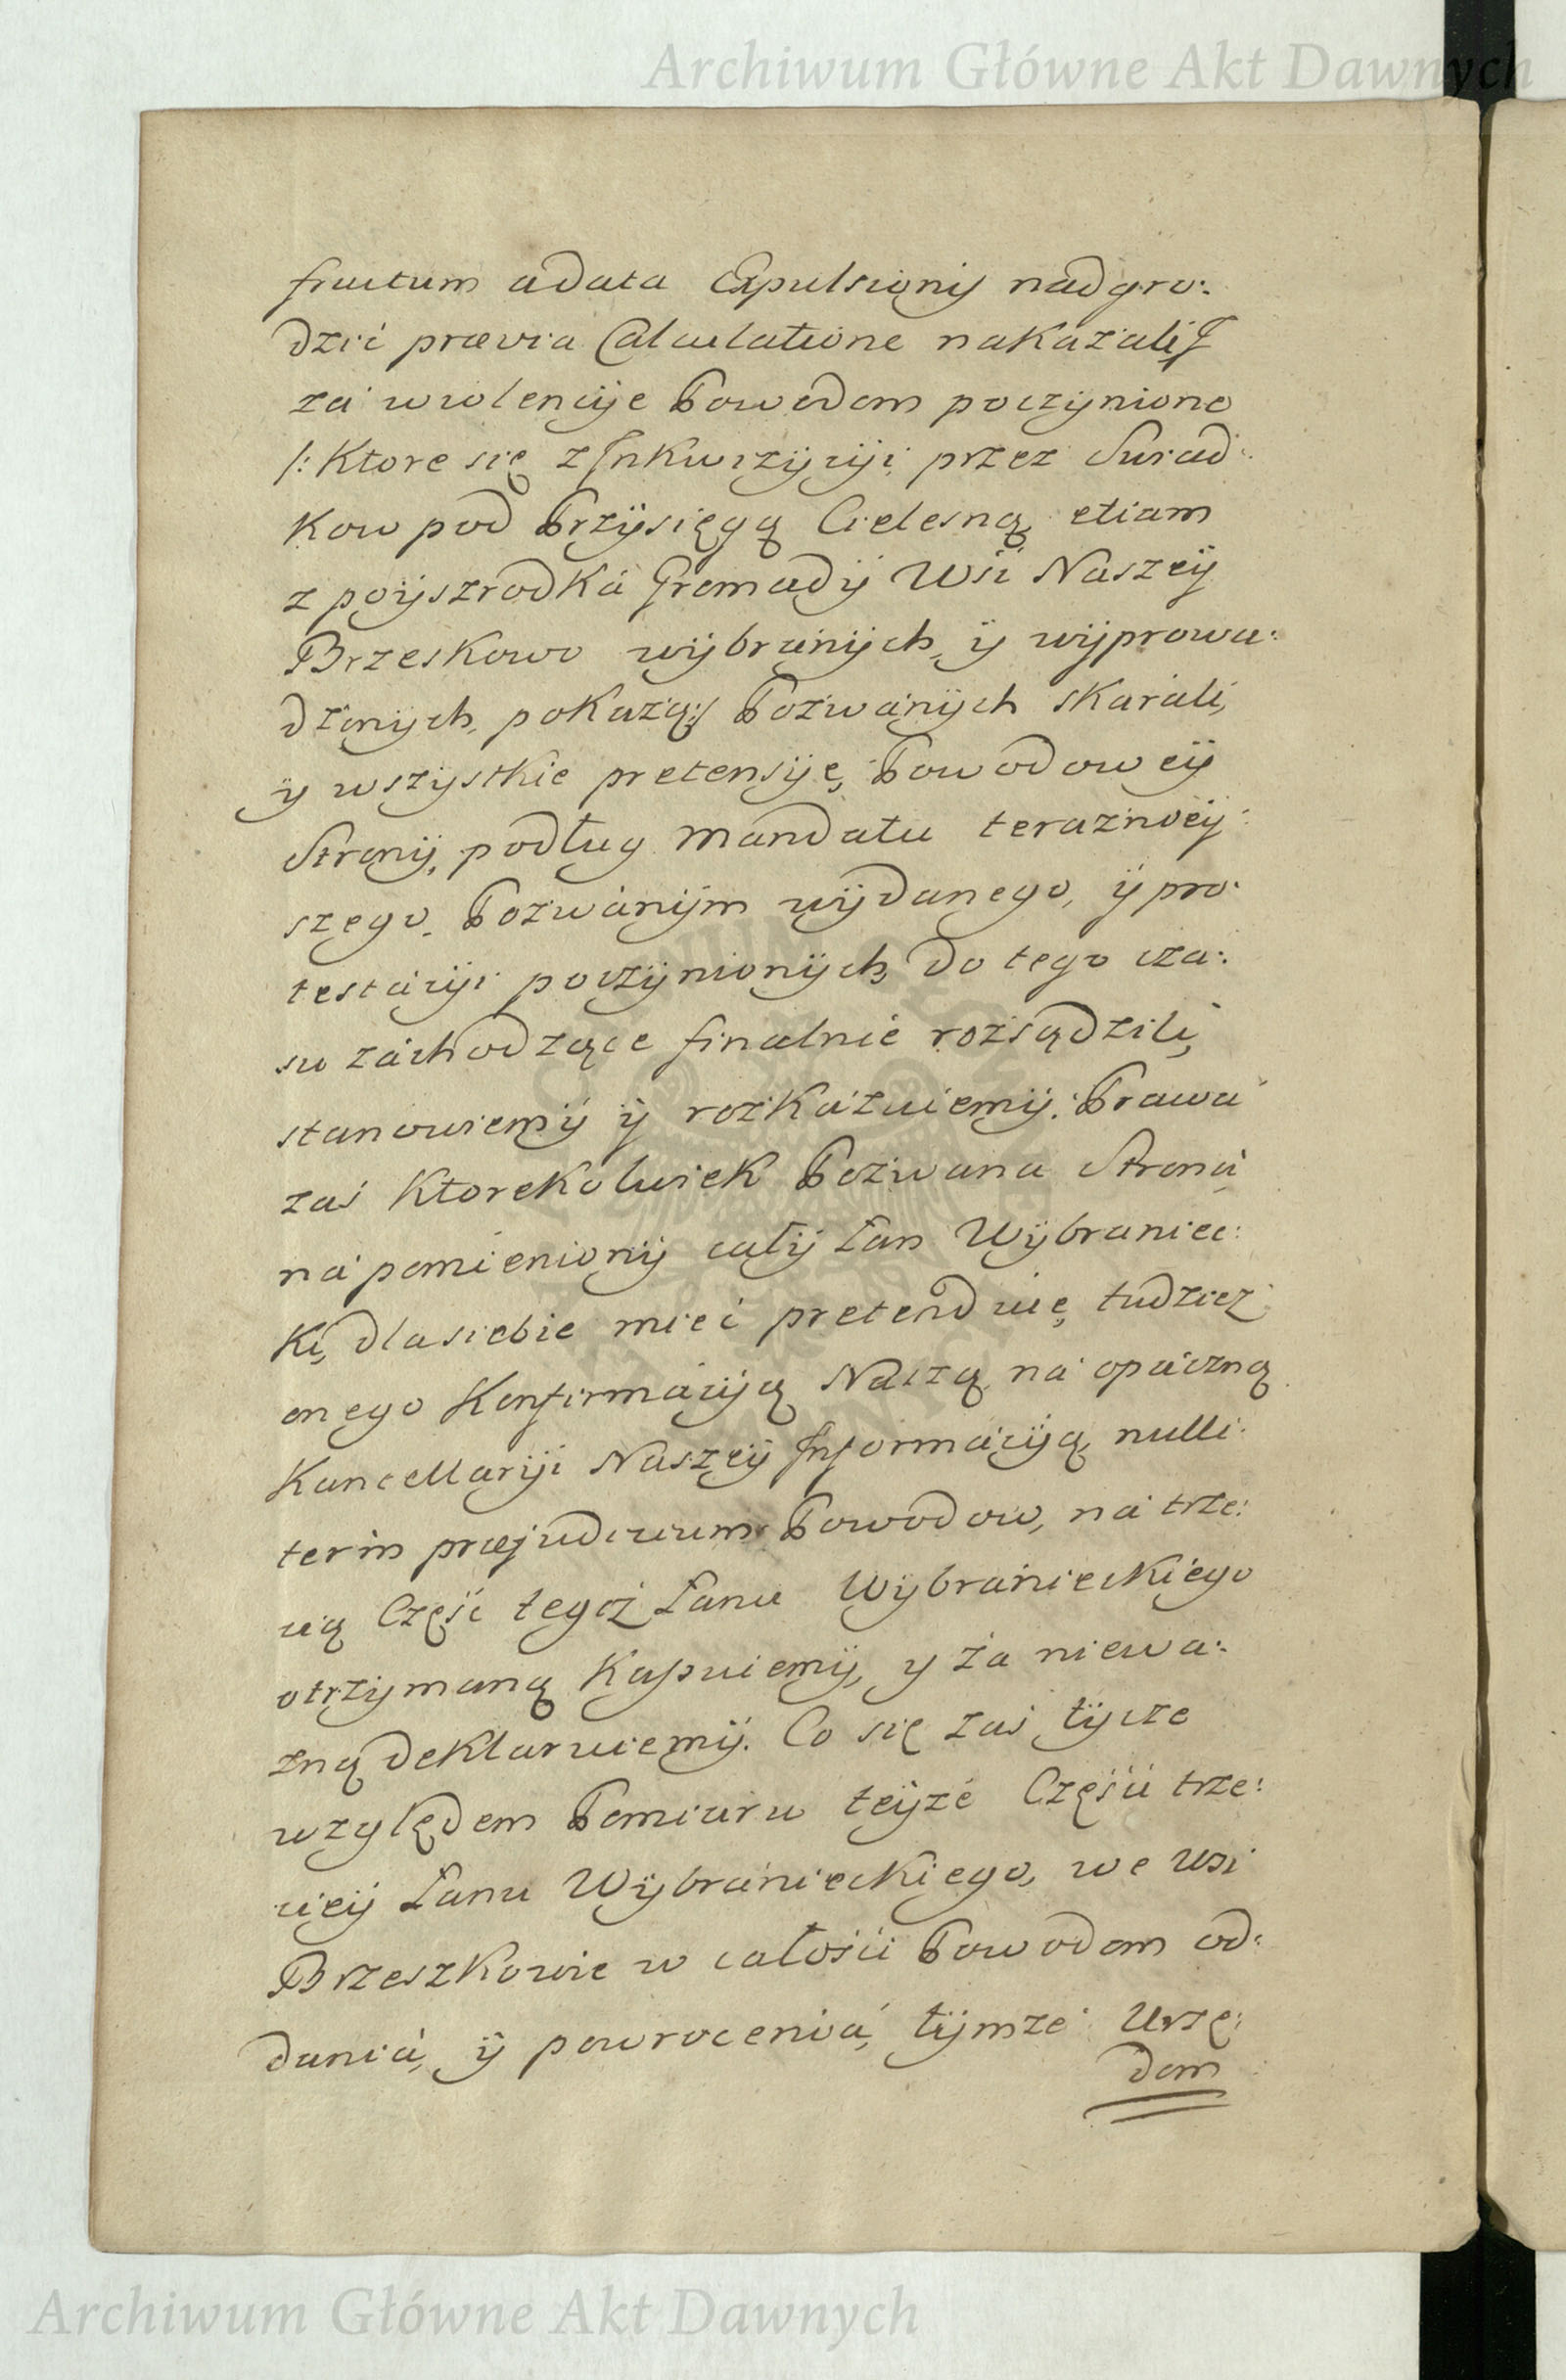 Archiwum Główne Akt Dawnych
fructum a data Expulsionis nadgro:
dzić prævia Calculatione nakazali, J
za wiolencyje Powodom poczynione
/: Ktore się z Jnkwizycyi przez Swiad:
kow pod Przysięgą Cielesną, etiam
z poyszrodka Gromady Wsi Naszey
Brzeskowo wybranych, y wyprowa:
dzonych, pokażą :/ Pozwanych skarali,
y wszystkie pretensye, Powodowey
Strony, podług Mandatu teraznıey:
szego, Pozwanym wydanego, y pro:
testacyi poczynionych, do tego cza:
su zachodzące finalnie rozsądzili,
stanowiemy y rozkazuiemy. Prawa
zaś Ktorekolwiek Pozwana Strona
na pomieniony cały Łan Wybraniec:
ki, dla siebie mieć pretenduie, tudziez
onego Konfirmacyją Naszą, na opaczną
Kancellaryi Naszey Jnformacyją, nulli:
ter in præjudicium Powodow, na trze:
cią Część tegoż Łanu Wybranieckiego
otrzymaną Kassuiemy, y za niewa:
żną deklaruiemy. Co się zaś tycze
względem Pomiaru teyże Części trze:
ciey Łanu Wybranieckiego, we wsi
Brzeszkowie w całości Powodom od:
dania, y powrocenia, tymże Urzę:
dom
Archiwum Główne Akt Dawnych